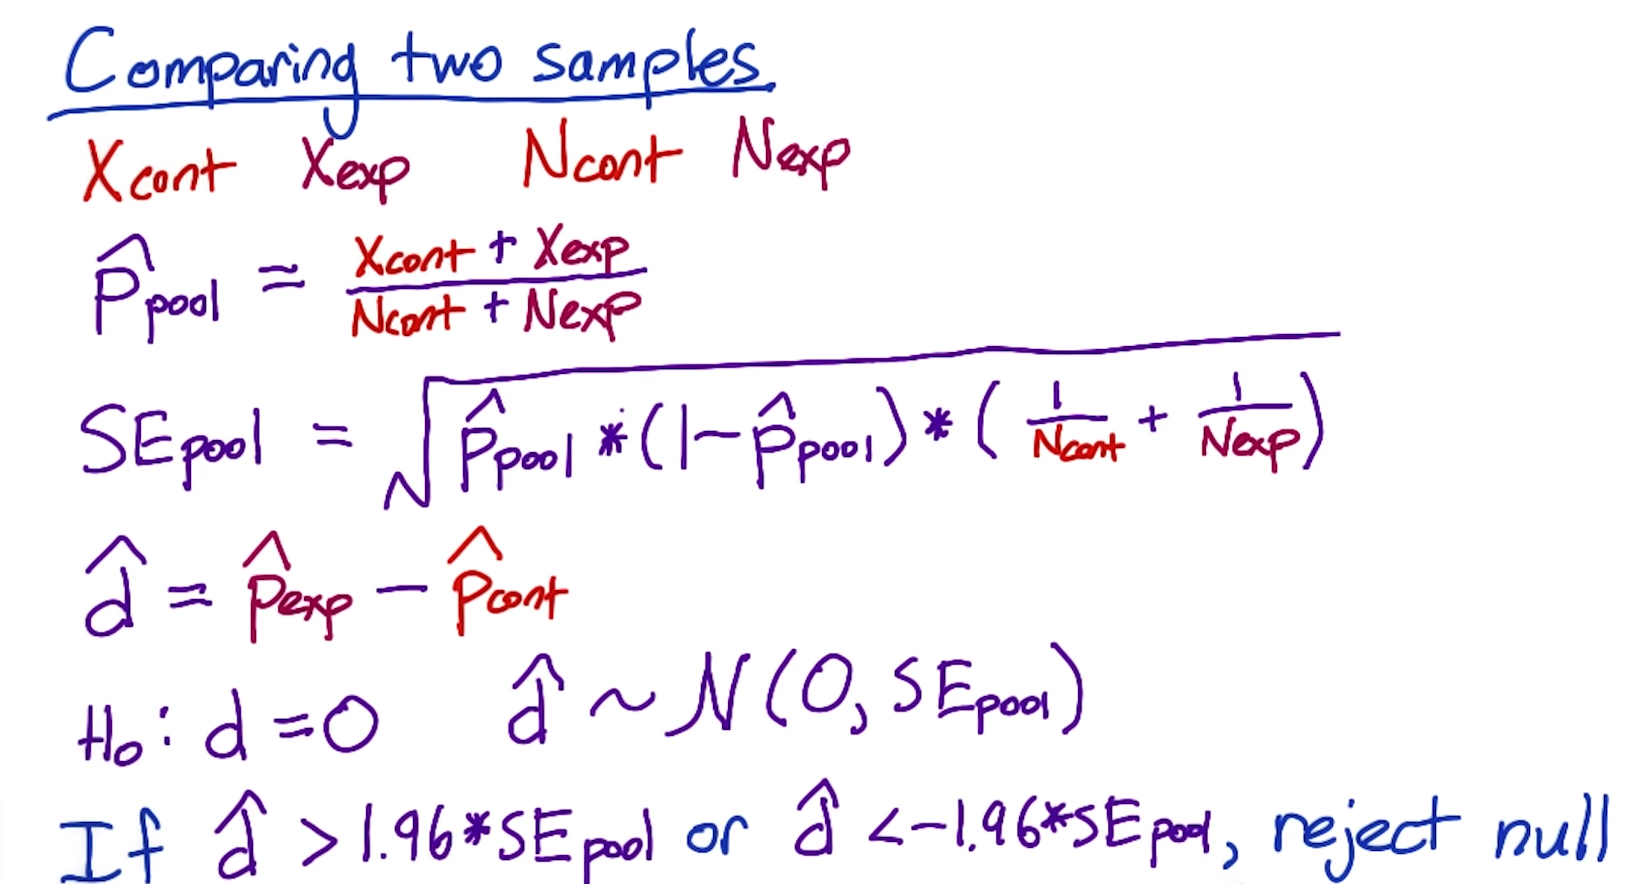 Comparing two samples
Xcont Xexp Ncont Nexp
p̂pool = (Xcont + Xexp) / (Ncont + Nexp)
SEpool = √(p̂pool * (1-p̂pool) * (1/Ncont + 1/Nexp))
d̂ = p̂exp - p̂cont
H₀: d = 0 d̂ ~ N(0, SEpool)
If d̂ > 1.96*SEpool or d̂ < -1.96*SEpool, reject null